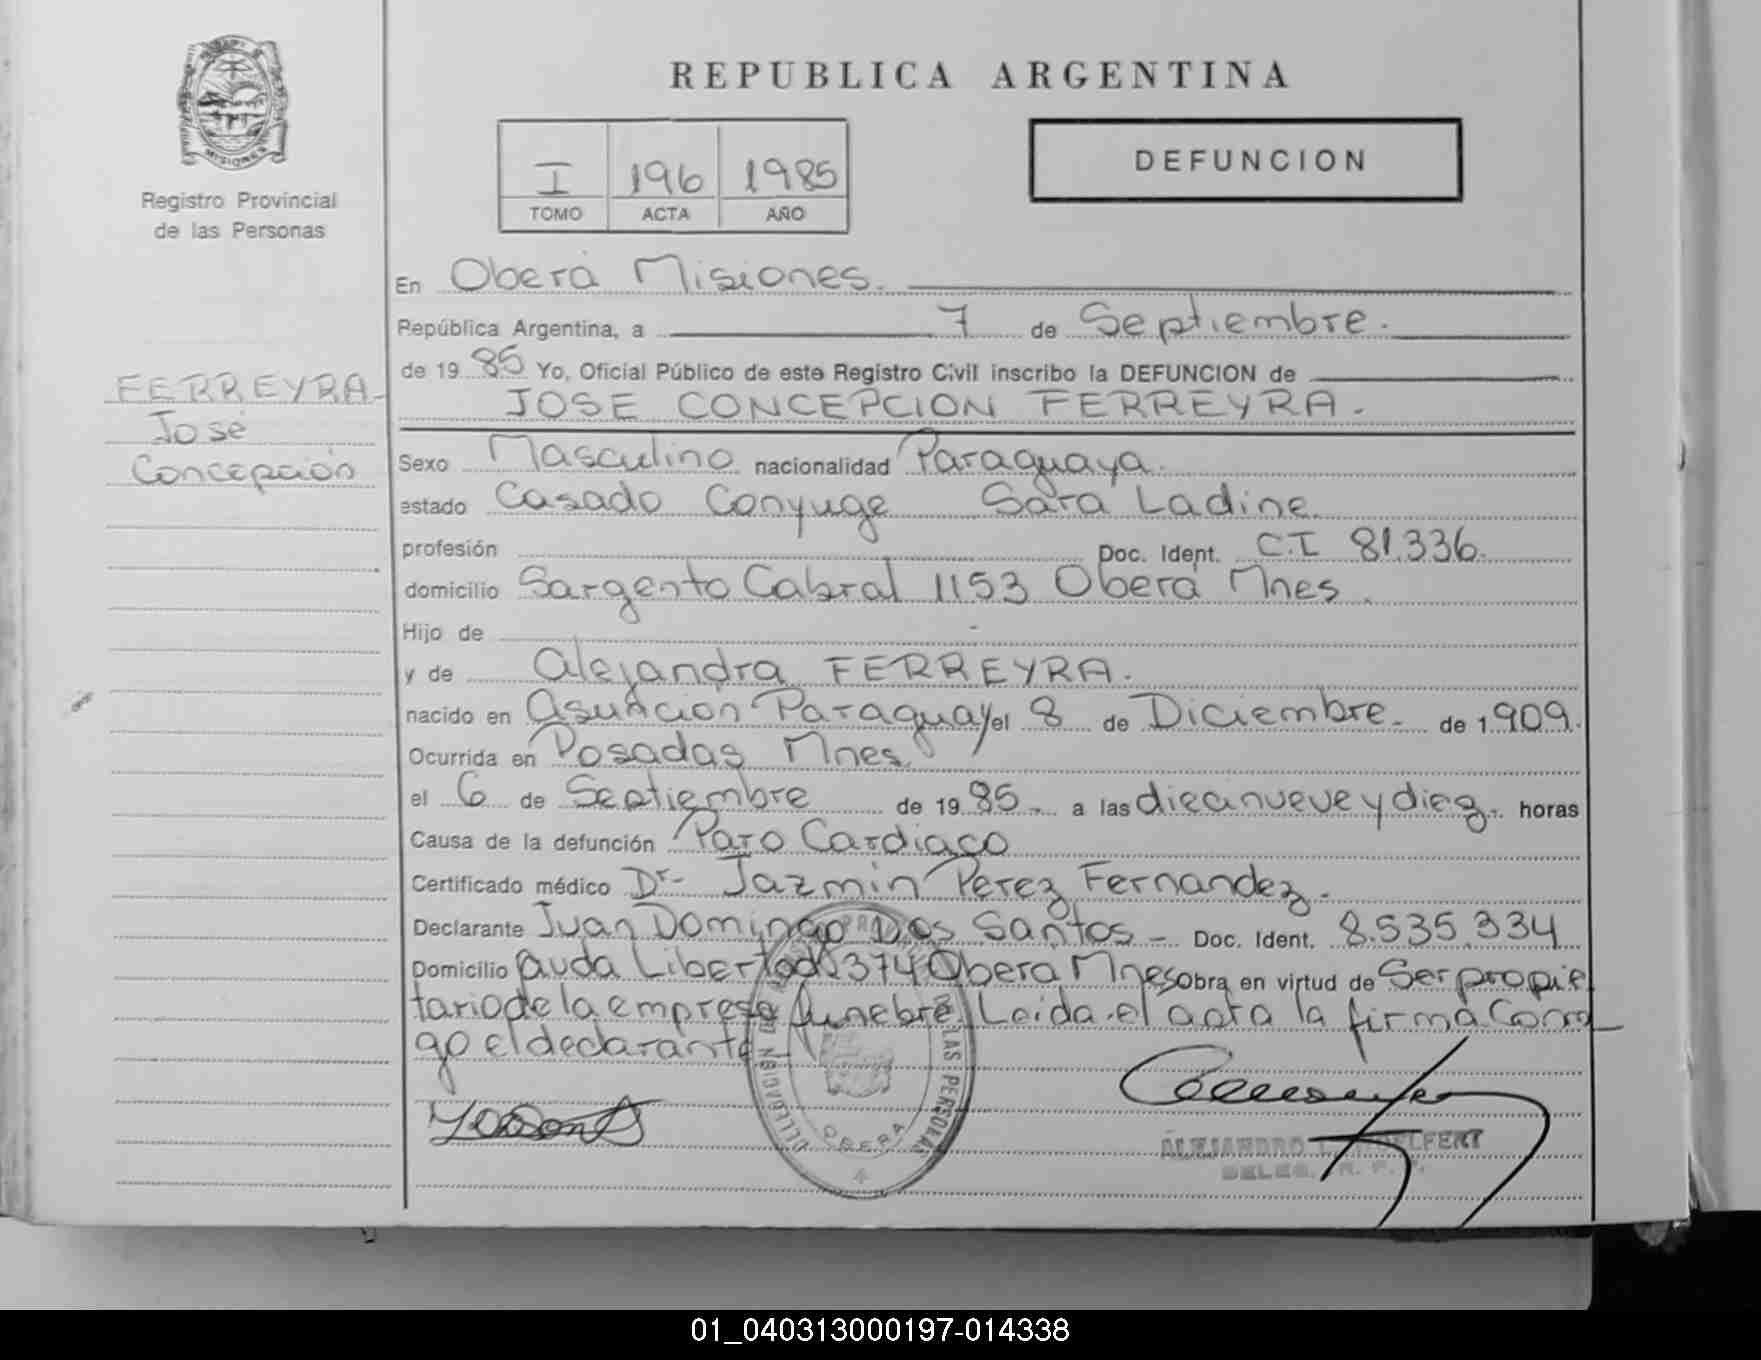 MISIONES
Registro Provincial
de las Personas
FERREYRA-
José
Concepción
REPUBLICA ARGENTINA
I 196 1985
TOMO ACTA AÑO
DEFUNCION
En Oberá Misiones.
República Argentina, a 7 de Septiembre.
de 19 85 Yo, Oficial Público de este Registro Civil inscribo la DEFUNCION de
JOSE CONCEPCION FERREYRA.
Sexo Masculino nacionalidad Paraguaya.
estado Casado Conyuge Sara Ladine
profesión Doc. Ident. C.I 81.336.
domicilio Sargento Cabral 1153 Oberá Mnes.
Hijo de
y de Alejandra FERREYRA.
nacido en Asunción Paraguay el 8 de Diciembre. de 1909.
Ocurrida en Posadas Mnes.
el 6 de Septiembre de 19 85. a las diecinueve y diez. horas
Causa de la defunción Paro Cardiaco
Certificado médico Dr- Jazmin Perez Fernandez.
Declarante Juan Domingo Dos Santos - Doc. Ident. 8.535.334
Domicilio Avda Libertad 374 Obera Mnes obra en virtud de Ser propie
tario de la empresa funebre. Leida el acta la firma Conmi
go el declarante
DELEGACION
LAS PERSONAS
OBERA
ALEJANDRO
DELEG. R. P. P.
01_040313000197-014338